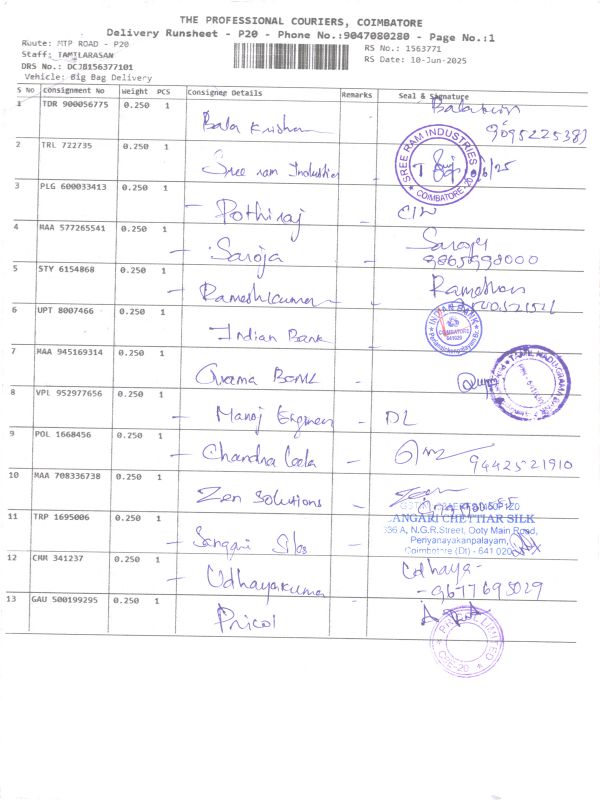 THE PROFESSIONAL COURIERS, COIMBATORE
Delivery Runsheet - P20 - Phone No.:9047080280 - Page No.:1
Route: MTP ROAD - P20
RS No.: 1563771
Staff: TAMILARASAN
RS Date: 10-Jun-2025
DRS No.: DCJB156377101
Vehicle: Big Bag Delivery
S No Consignment No Weight PCS Consignee Details Remarks Seal & Signature
1 TDR 900056775 0.250 1 Bala Krishan
9095225383
2 TRL 722735 0.250 1 Sree ram Industries SREE RAM INDUSTRIES COIMBATORE-20
3 PLG 600033413 0.250 1 Pothiraj -
4 MAA 577265541 0.250 1 - Saroja - Saroja
9865998000
5 STY 6154868 0.250 1 - Rameshkumar -
6 UPT 8007466 0.250 1 Indian Bank INDIAN BANK COIMBATORE 641020
7 MAA 945169314 0.250 1 Grama Bank - TAMIL NADU GRAMA BANK
8 VPL 952977656 0.250 1 - Manoj - DL
9 POL 1668456 0.250 1 - Chandra Leela -
9442521910
10 MAA 708336738 0.250 1 Zen Solutions -
ANGARI CHETTIAR SILK
336 A, N.G.R.Street, Ooty Main Road,
Periyanayakanpalayam,
Coimbatore (Dt) - 641 020
11 TRP 1695006 0.250 1 -
12 CMM 341237 0.250 1 - Udhayakumar Udhaya -
- 9677695029
13 GAU 500199295 0.250 1 Pricol LIMITED CBE-20